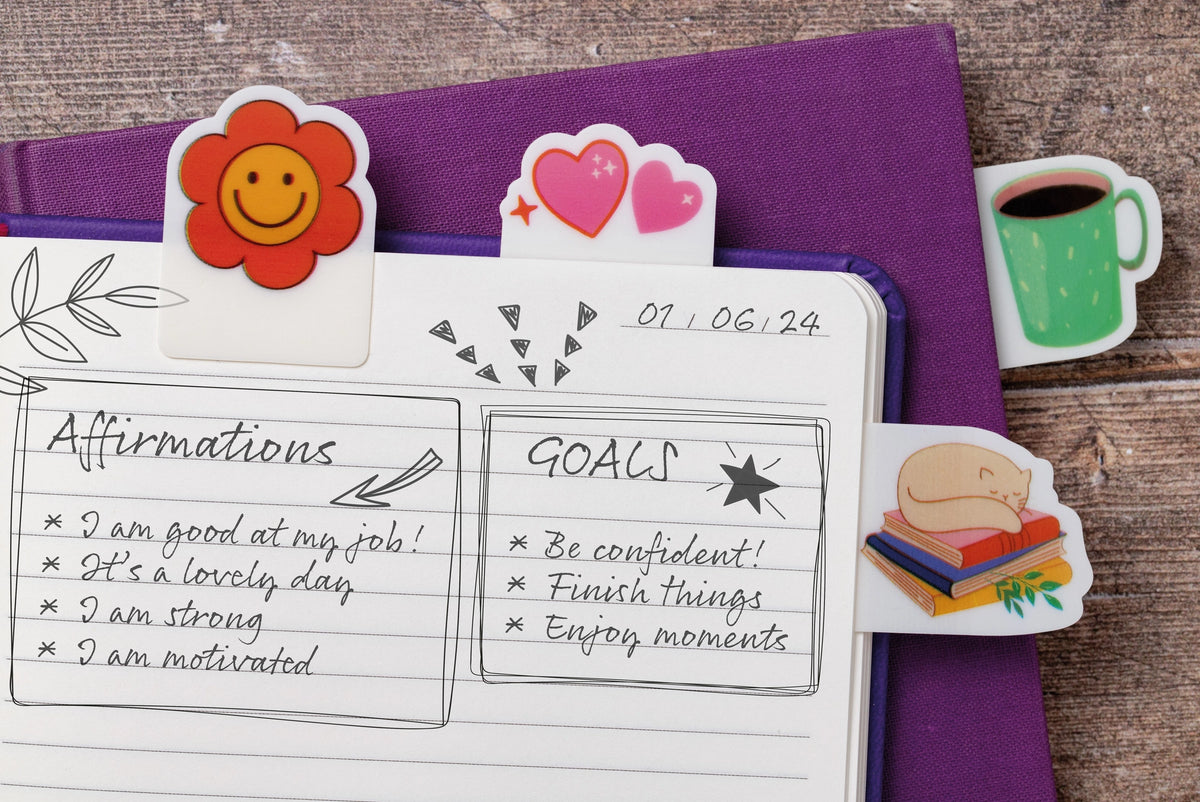 01 / 06 / 24
Affirmations
* I am good at my job!
* It's a lovely day
* I am strong
* I am motivated
GOALS
* Be confident!
* Finish things
* Enjoy moments